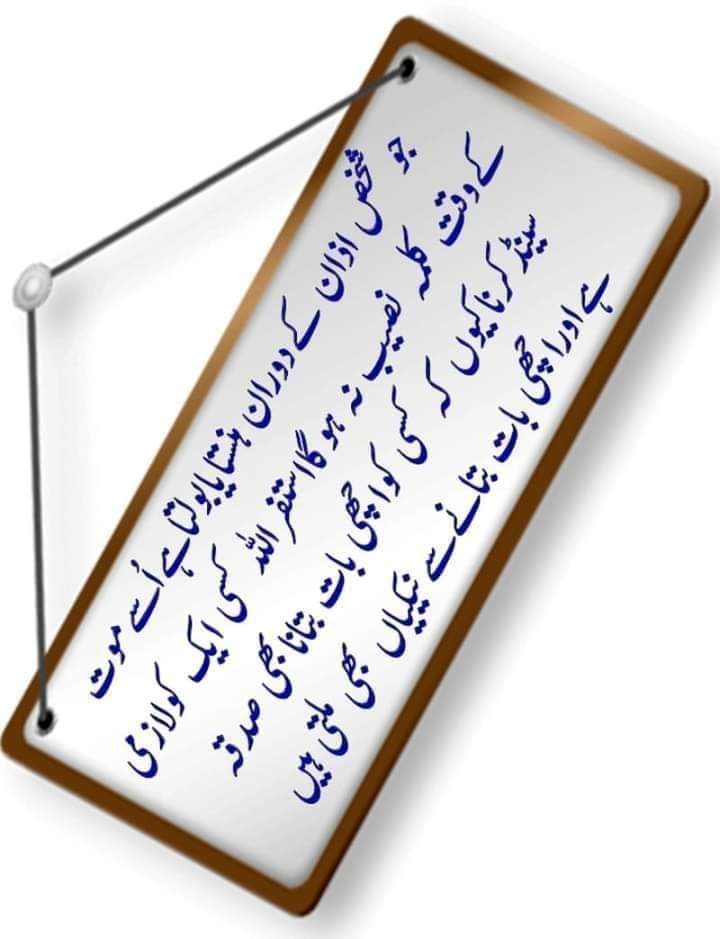 جو شخص اذان کے دوران ہنستا یا بولتا ہے اُسے موت
کے وقت کلمہ نصیب نہ ہو گا استغفر اللہ کسی ایک کو لازمی
سینڈ کرنا کیوں کہ کسی کو اچھی بات بتانا بھی صدقہ
ہے اور اچھی بات بتانے سے نیکیاں بھی ملتی ہیں